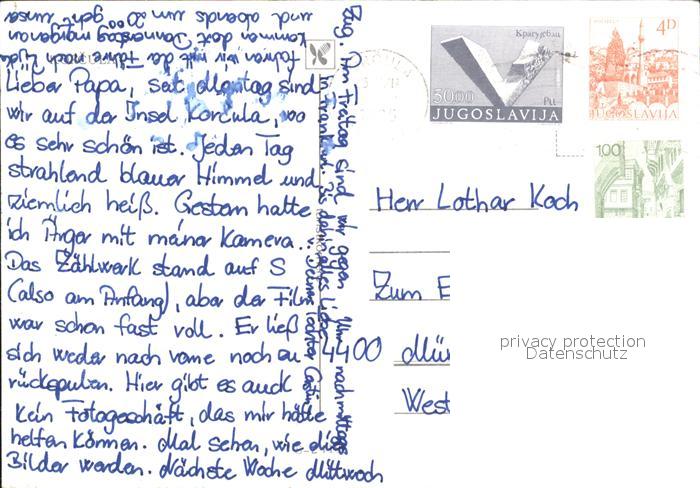 Lieber Papa, seit Montag sind
wir auf der Insel Korcula, wo
es sehr schön ist. Jeden Tag
strahlend blauer Himmel und
ziemlich heiß. Gestern hatte
ich Ärger mit meiner Kamera.
Das Zählwerk stand auf S
(also am Anfang), aber der Film
war schon fast voll. Er ließ
sich weder nach vorne noch zu-
rückspulen. Hier gibt es auch
kein Fotogeschäft, das mir hätte
helfen können. Mal sehen, wie die
Bilder werden. Nächste Woche Mittwoch
fahren wir mit der Fähre nach
kommen dort Donnerstag morgen an
und abends um 20.00 geht unser
Zug. Am Freitag sind wir gegen Uhr nachmittags
in Frankfurt. Bis dahin alles Liebe
Deine Tochter
Крагујевац
5000
РЦ
JUGOSLAVIJA
4D
JUGOSLAVIJA
1.00
Herr Lothar Koch
Zum E
4400 Mün
West
privacy protection
Datenschutz